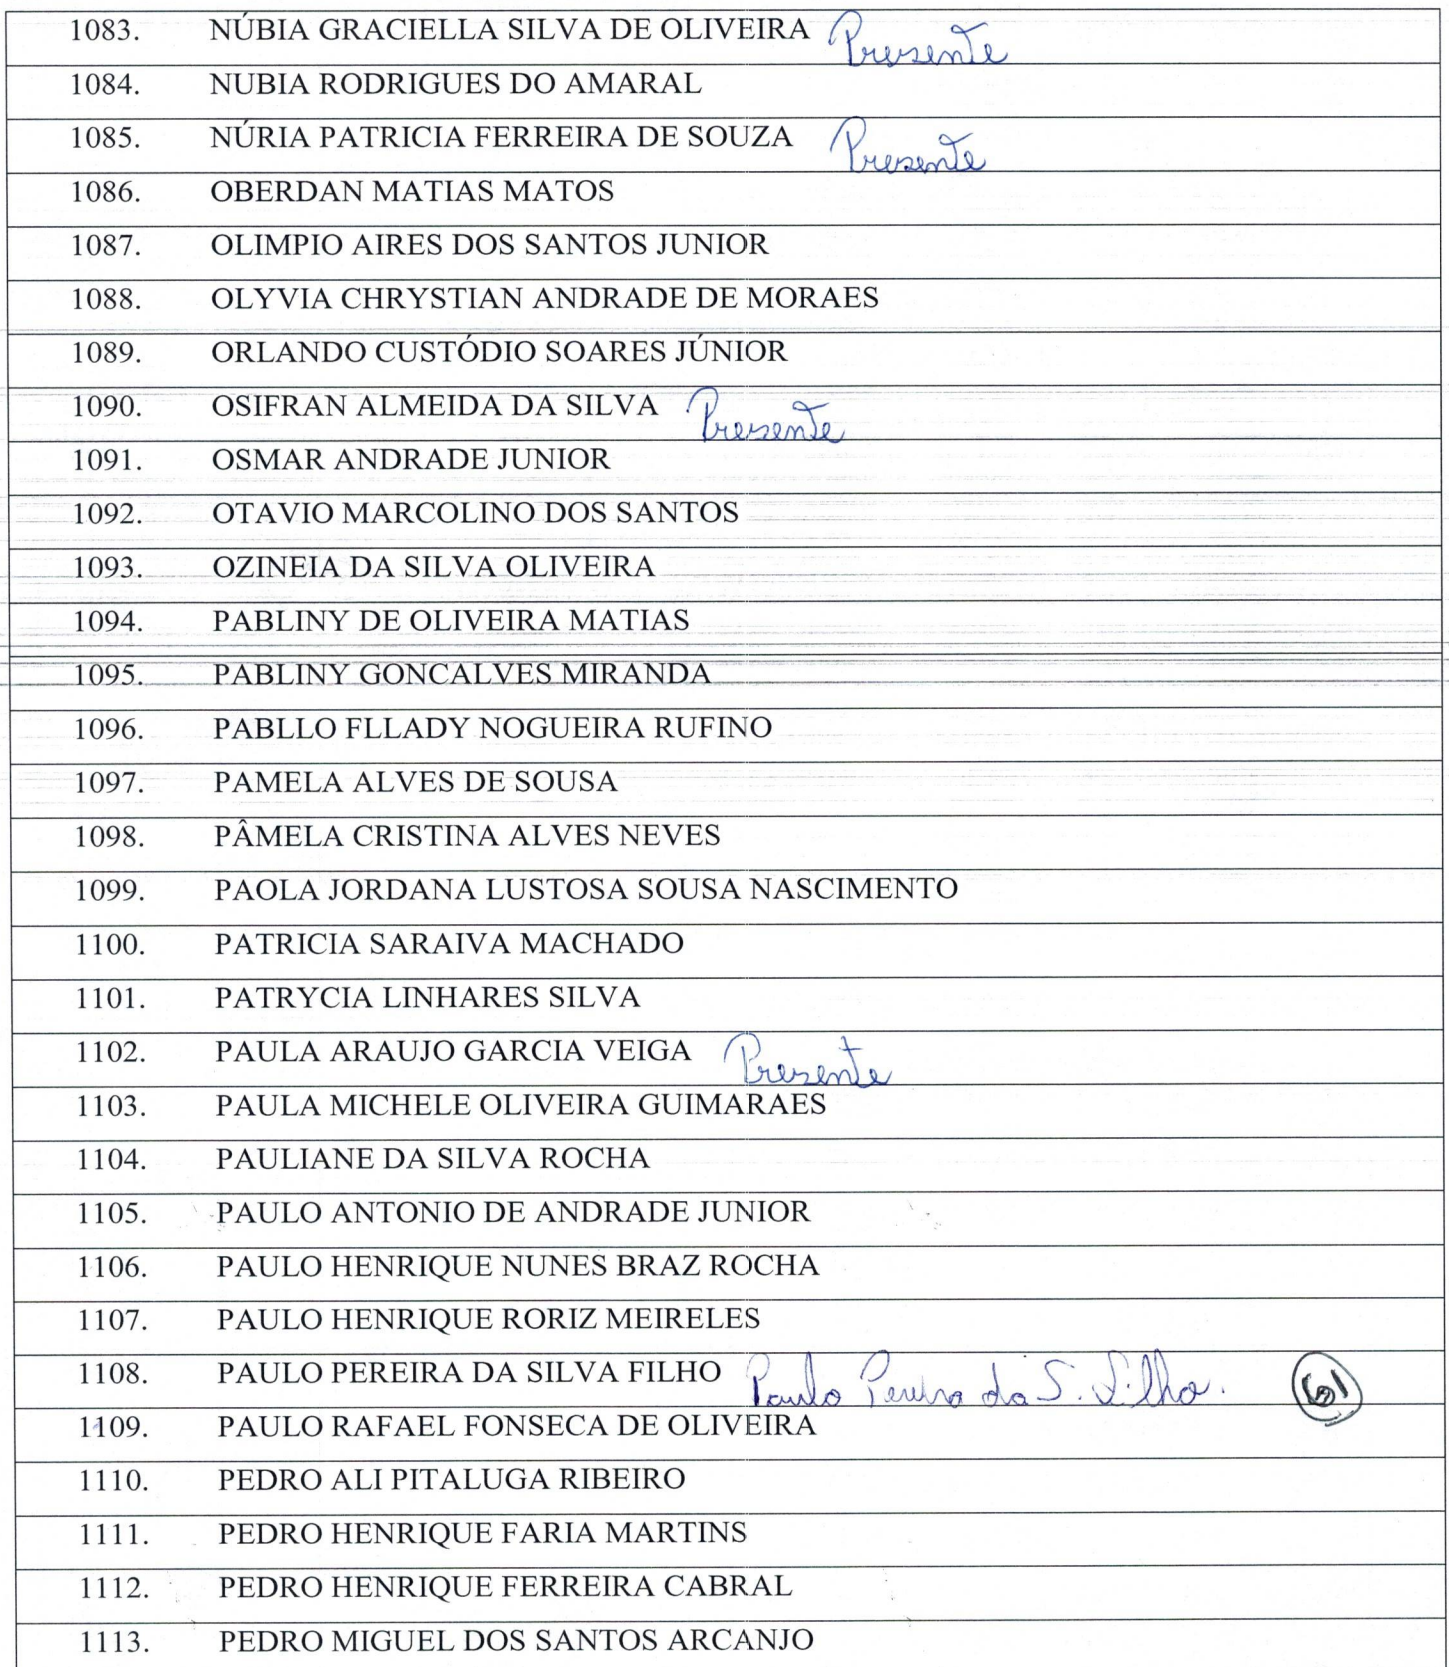 1083. NÚBIA GRACIELLA SILVA DE OLIVEIRA Presente
1084. NUBIA RODRIGUES DO AMARAL
1085. NÚRIA PATRICIA FERREIRA DE SOUZA Presente
1086. OBERDAN MATIAS MATOS
1087. OLIMPIO AIRES DOS SANTOS JUNIOR
1088. OLYVIA CHRYSTIAN ANDRADE DE MORAES
1089. ORLANDO CUSTÓDIO SOARES JÚNIOR
1090. OSIFRAN ALMEIDA DA SILVA Presente
1091. OSMAR ANDRADE JUNIOR
1092. OTAVIO MARCOLINO DOS SANTOS
1093. OZINEIA DA SILVA OLIVEIRA
1094. PABLINY DE OLIVEIRA MATIAS
1095. PABLINY GONCALVES MIRANDA
1096. PABLLO FLLADY NOGUEIRA RUFINO
1097. PAMELA ALVES DE SOUSA
1098. PÂMELA CRISTINA ALVES NEVES
1099. PAOLA JORDANA LUSTOSA SOUSA NASCIMENTO
1100. PATRICIA SARAIVA MACHADO
1101. PATRYCIA LINHARES SILVA
1102. PAULA ARAUJO GARCIA VEIGA Presente
1103. PAULA MICHELE OLIVEIRA GUIMARAES
1104. PAULIANE DA SILVA ROCHA
1105. PAULO ANTONIO DE ANDRADE JUNIOR
1106. PAULO HENRIQUE NUNES BRAZ ROCHA
1107. PAULO HENRIQUE RORIZ MEIRELES
1108. PAULO PEREIRA DA SILVA FILHO Paulo Pereira da S. Filho.
1109. PAULO RAFAEL FONSECA DE OLIVEIRA
1110. PEDRO ALI PITALUGA RIBEIRO
1111. PEDRO HENRIQUE FARIA MARTINS
1112. PEDRO HENRIQUE FERREIRA CABRAL
1113. PEDRO MIGUEL DOS SANTOS ARCANJO